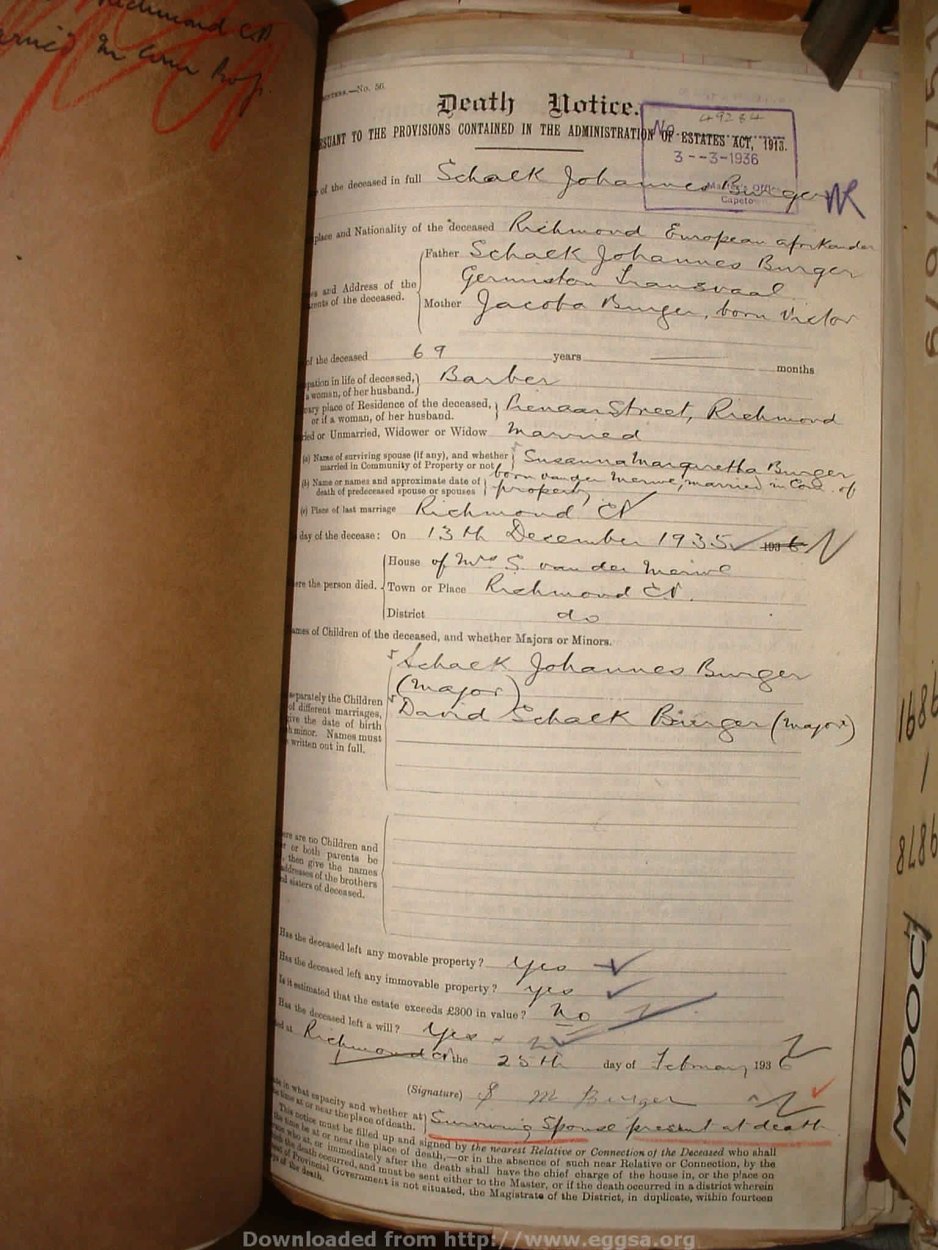 Richmond CP
in Com Prop.
No. 56.
Death Notice.
TO THE PROVISIONS CONTAINED IN THE ADMINISTRATION OF ESTATES ACT, 1913.
No. 49264
3--3-1936
Capeto
of the deceased in full Schalk Johannes Burger
place and Nationality of the deceased Richmond European afrikander
Father Schalk Johannes Burger
Germiston Transvaal
and Address of the
of the deceased.
Mother Jacoba Burger, born Victor
of the deceased 69 years months
in life of deceased, Barber
woman, of her husband.
place of Residence of the deceased, Pienaar Street, Richmond
or if a woman, of her husband.
or Unmarried, Widower or Widow Married
(a) Name of surviving spouse (if any), and whether Susanna Margaretha Burger
married in Community of Property or not born van der Merwe, married in Com. of
(b) Name or names and approximate date of property
death of predeceased spouse or spouses
(c) Place of last marriage Richmond CP
day of the decease: On 13th December 1935 1936
House of Mrs S. van der Merwe
the person died. Town or Place Richmond CP.
District do
of Children of the deceased, and whether Majors or Minors.
Schalk Johannes Burger
(major)
separately the Children
of different marriages, David Schalk Burger (major)
give the date of birth
minor. Names must
written out in full.
are no Children and
or both parents be
then give the names
addresses of the brothers
sisters of deceased.
Has the deceased left any movable property? Yes
Has the deceased left any immovable property? yes
Is it estimated that the estate exceeds £300 in value? No
Has the deceased left a will? Yes
at Richmond CP the 25th day of February 1936
(Signature) S M Burger
in what capacity and whether at
time at or near the place of death. Surviving Spouse present at death
This notice must be filled up and signed by the nearest Relative or Connection of the Deceased who shall
the time be at or near the place of death,—or in the absence of such near Relative or Connection, by the
who at, or immediately after the death shall have the chief charge of the house in, or the place on
the death occurred, and must be sent either to the Master, or if the death occurred in a district wherein
of Provincial Government is not situated, the Magistrate of the District, in duplicate, within fourteen
of the death.
MOOC
Downloaded from http://www.eggsa.org